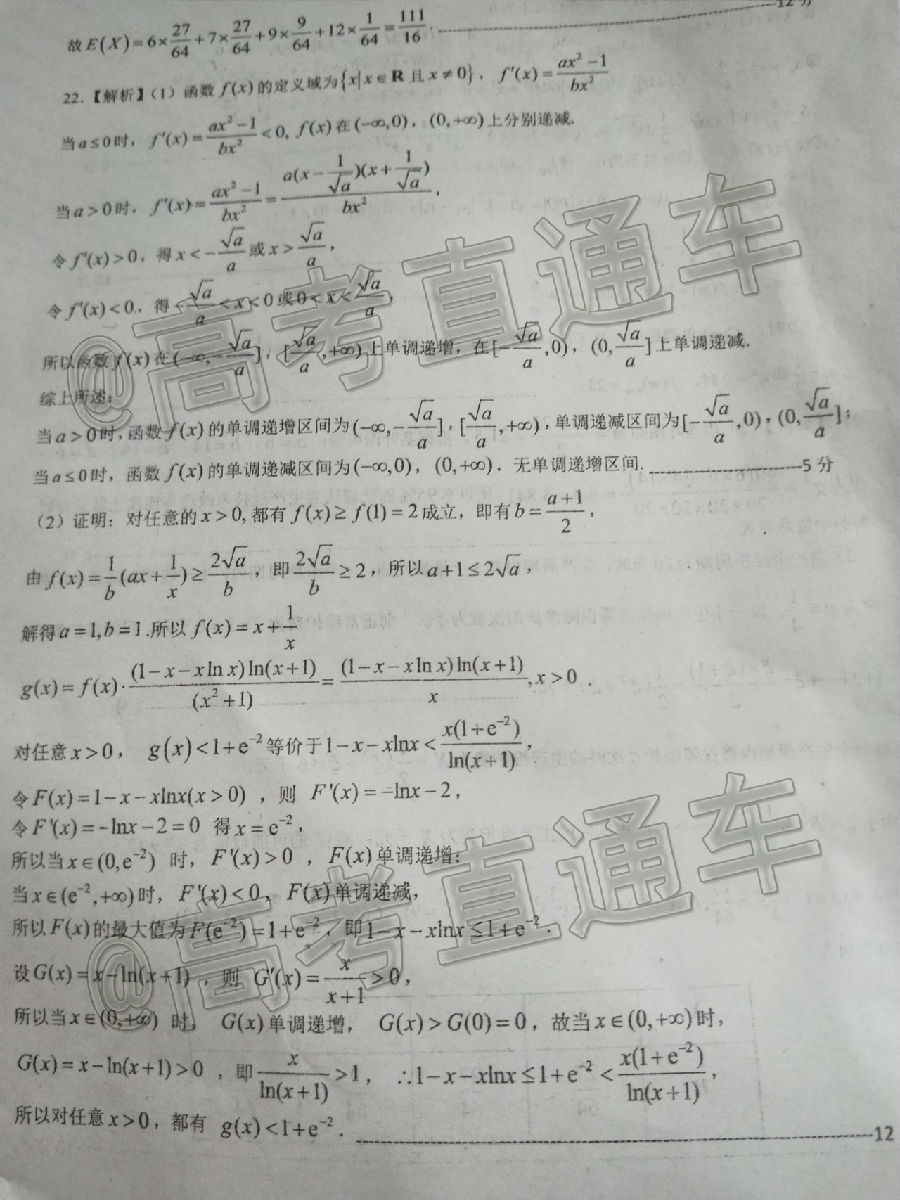 12 分
故 E(X)=6×27/64+7×27/64+9×9/64+12×1/64=111/16.
22.【解析】(1) 函数 f(x) 的定义域为 {x|x∈R 且 x≠0}, f'(x)=(ax²-1)/(bx²)
当 a≤0 时, f'(x)=(ax²-1)/(bx²)<0, f(x) 在 (-∞,0), (0,+∞) 上分别递减.
当 a>0 时, f'(x)=(ax²-1)/(bx²)=a(x-1/√a)(x+1/√a)/(bx²),
令 f'(x)>0, 得 x<-√a/a 或 x>√a/a,
令 f'(x)<0, 得 -√a/a<x<0 或 0<x<√a/a,
所以函数 f(x) 在 (-∞,-√a/a], [√a/a,+∞) 上单调递增, 在 [-√a/a,0), (0,√a/a] 上单调递减.
综上所述:
当 a>0 时, 函数 f(x) 的单调递增区间为 (-∞,-√a/a], [√a/a,+∞), 单调递减区间为 [-√a/a,0), (0,√a/a];
当 a≤0 时, 函数 f(x) 的单调递减区间为 (-∞,0), (0,+∞), 无单调递增区间. 5 分
(2) 证明: 对任意的 x>0, 都有 f(x)≥f(1)=2 成立, 即有 b=(a+1)/2,
由 f(x)=1/b(ax+1/x)≥2√a/b, 即 2√a/b≥2, 所以 a+1≤2√a,
解得 a=1,b=1.所以 f(x)=x+1/x
g(x)=f(x)·(1-x-xlnx)ln(x+1)/(x²+1)=(1-x-xlnx)ln(x+1)/x, x>0.
对任意 x>0, g(x)<1+e⁻² 等价于 1-x-xlnx<x(1+e⁻²)/ln(x+1),
令 F(x)=1-x-xlnx(x>0), 则 F'(x)=-lnx-2,
令 F'(x)=-lnx-2=0 得 x=e⁻²,
所以当 x∈(0,e⁻²) 时, F'(x)>0, F(x) 单调递增;
当 x∈(e⁻²,+∞) 时, F'(x)<0, F(x) 单调递减,
所以 F(x) 的最大值为 F(e⁻²)=1+e⁻², 即 1-x-xlnx≤1+e⁻².
设 G(x)=x-ln(x+1), 则 G'(x)=x/(x+1)>0,
所以当 x∈(0,+∞) 时, G(x) 单调递增, G(x)>G(0)=0, 故当 x∈(0,+∞) 时,
G(x)=x-ln(x+1)>0, 即 x/ln(x+1)>1, ∴1-x-xlnx≤1+e⁻²<x(1+e⁻²)/ln(x+1),
所以对任意 x>0, 都有 g(x)<1+e⁻². 12
@高考直通车
@高考直通车